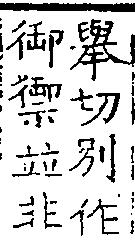 舉切別作
御禦並非